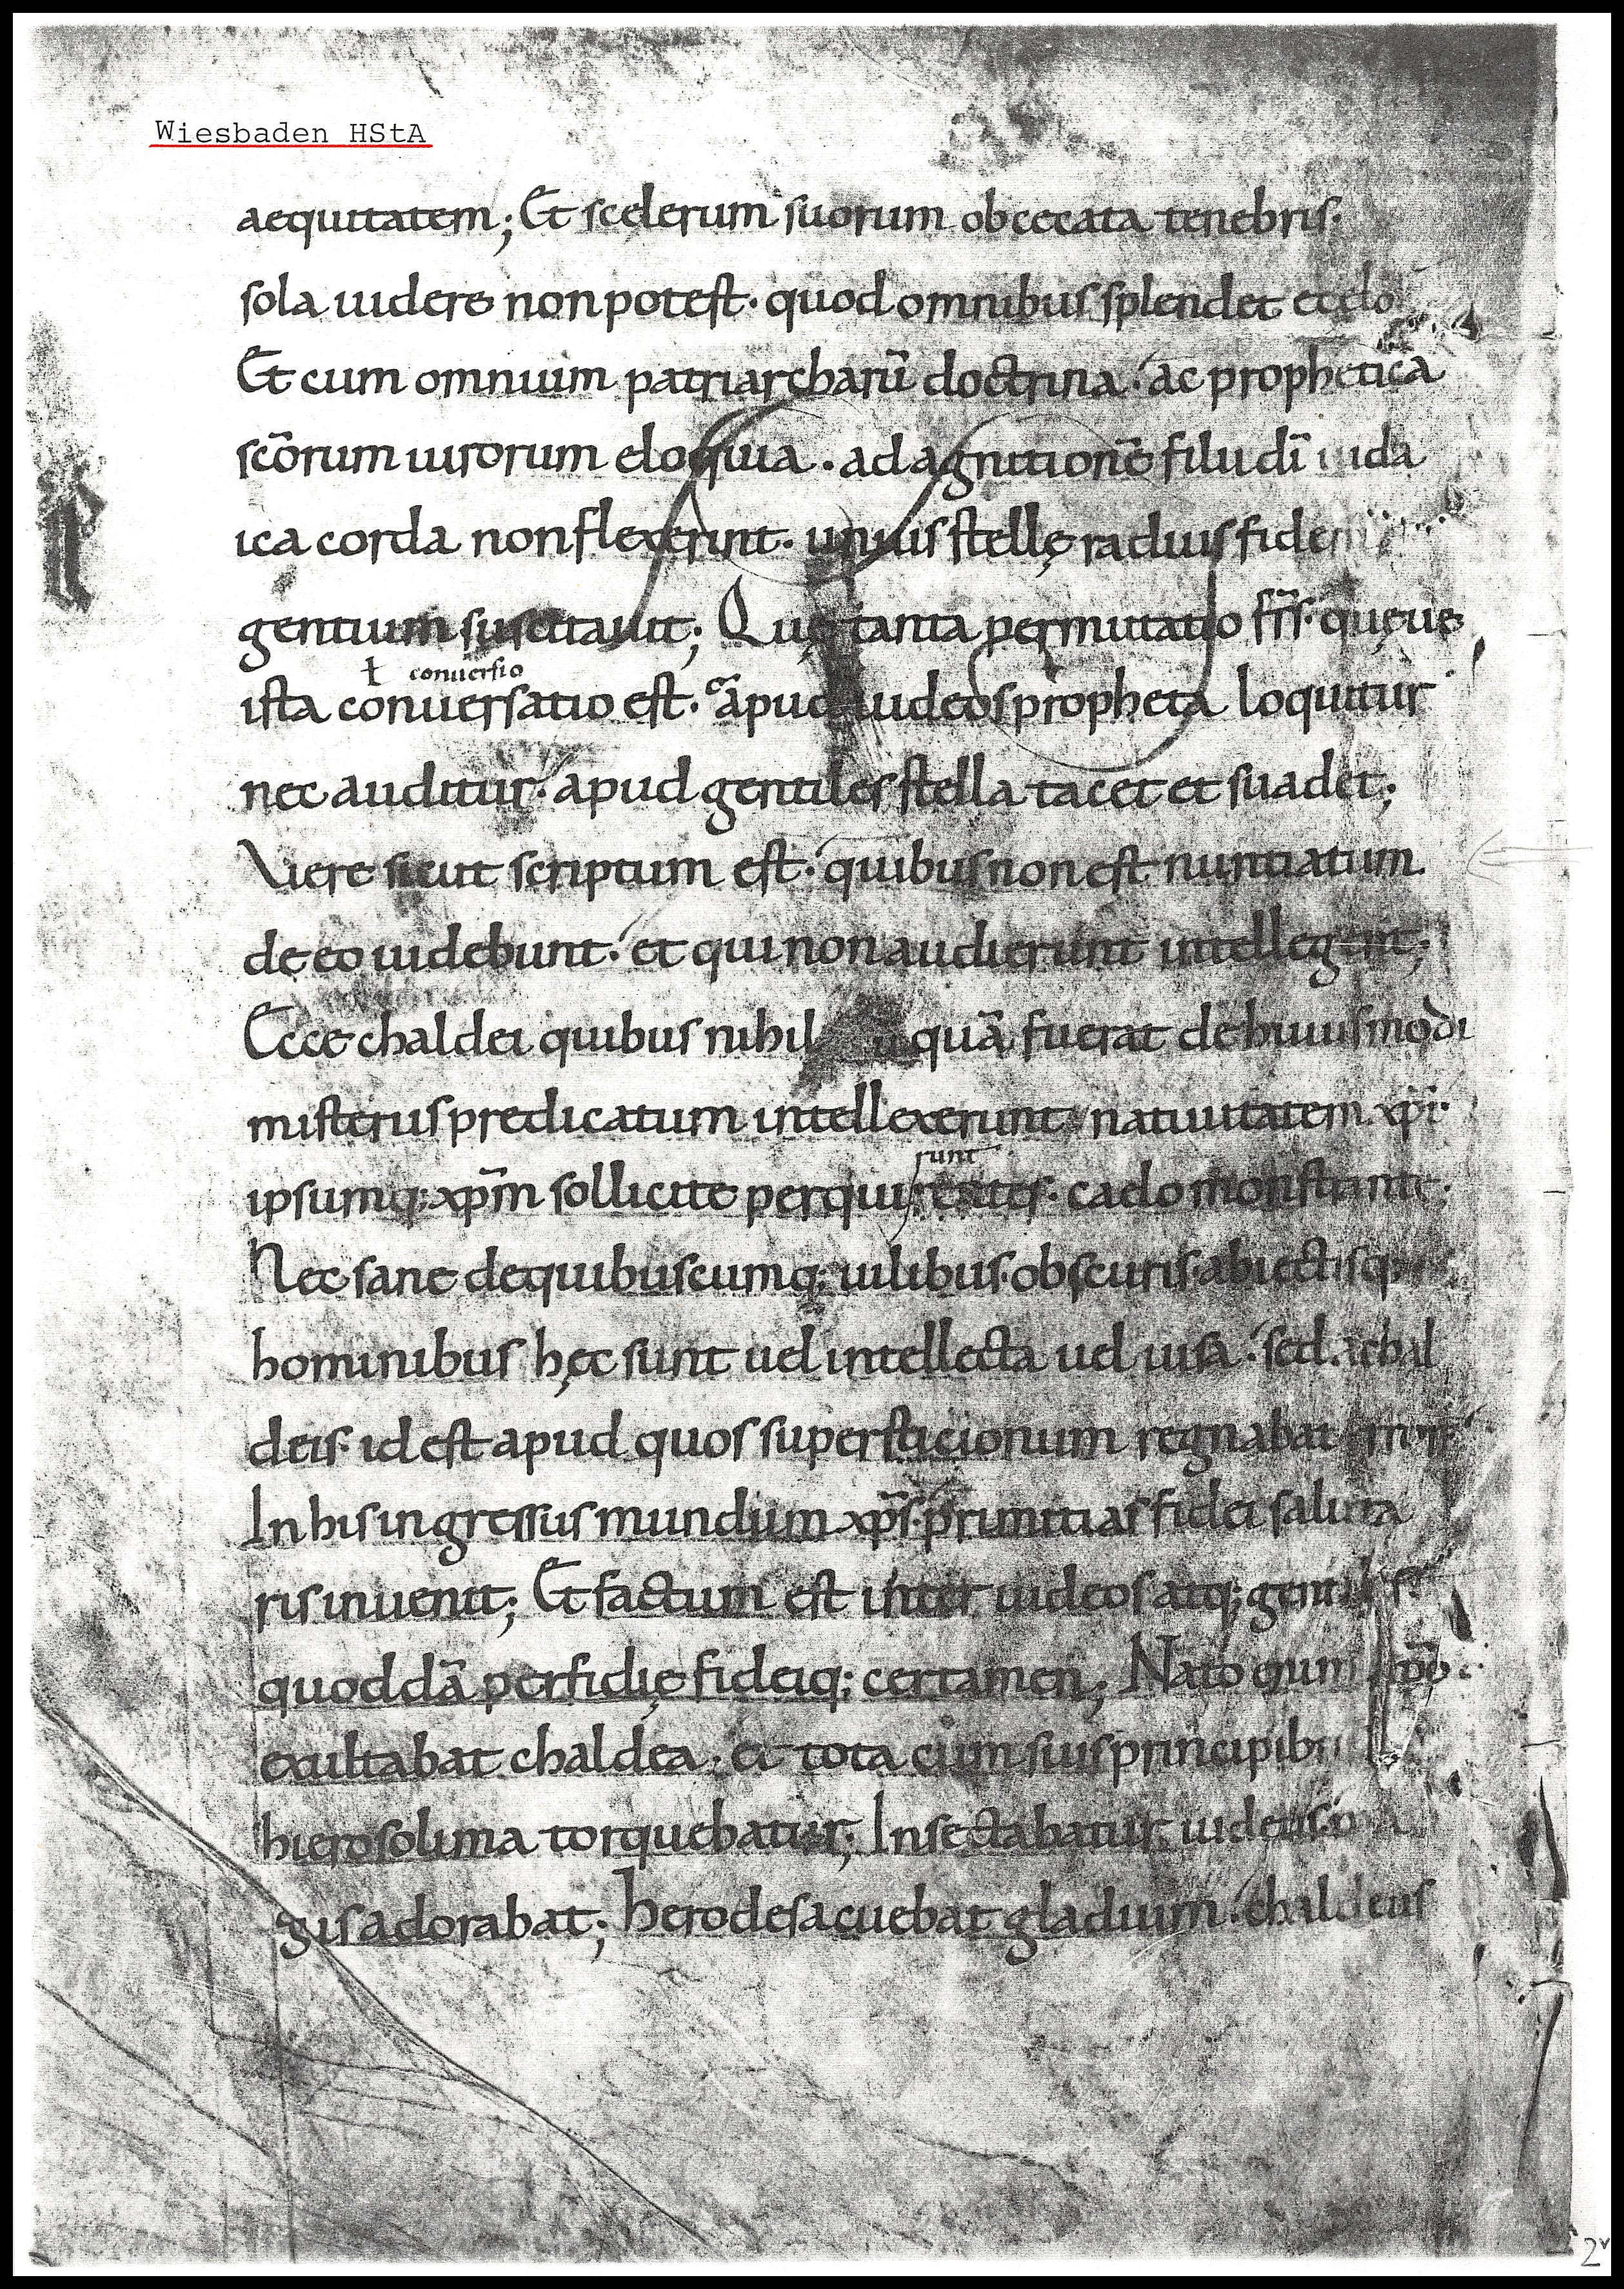 Wiesbaden HStA
aequitatem; Et scelerum suorum obcecata tenebris.
sola uidere non potest. quod omnibus splendet ecelo
Et cum omnium patriarcharū doctrina. ac prophetica
sc̄orum uirorum eloquia. ad agnitionē filii dī iuda
ica corda non flexerint. unius stellę radius fidem
gentium suscitauit; Quę tanta permutatio fr̄s. quęue
ł conuersio
ista conuersatio est. apud iudeos propheta loquitur
nec auditur. apud gentiles stella tacet et suadet;
Vere sicut scriptum est. quibus non est nuntiatum
de eo uidebunt. et qui non audierunt intellegent;
Ecce chaldei quibus nihil quā fuerat de huiusmodi
misteriis predicatum intellexerunt natiuitatem xp̄i.
runt
ipsumq; xp̄m sollicite perquirentes. caelo monstrante.
Nec sane de quibuscumq; uilibus. obscuris. abiectisq
hominibus hęc sunt uel intellecta uel uisa. sed achal
deis. id est apud quos supersticionum regnabat
In his ingressus mundum xp̄s. primitias fidei saluta
ris inuenit; Et factum est inter iudeos atq; gentiles
quoddā perfidię fideiq; certamen; Nato cum xp̄o.
exultabat chaldea. et tota cum suis principib
hierosolima torquebatur; Insectabatur iudeus. ma
gus adorabat; herodes acuebat gladium. chaldeus
2v